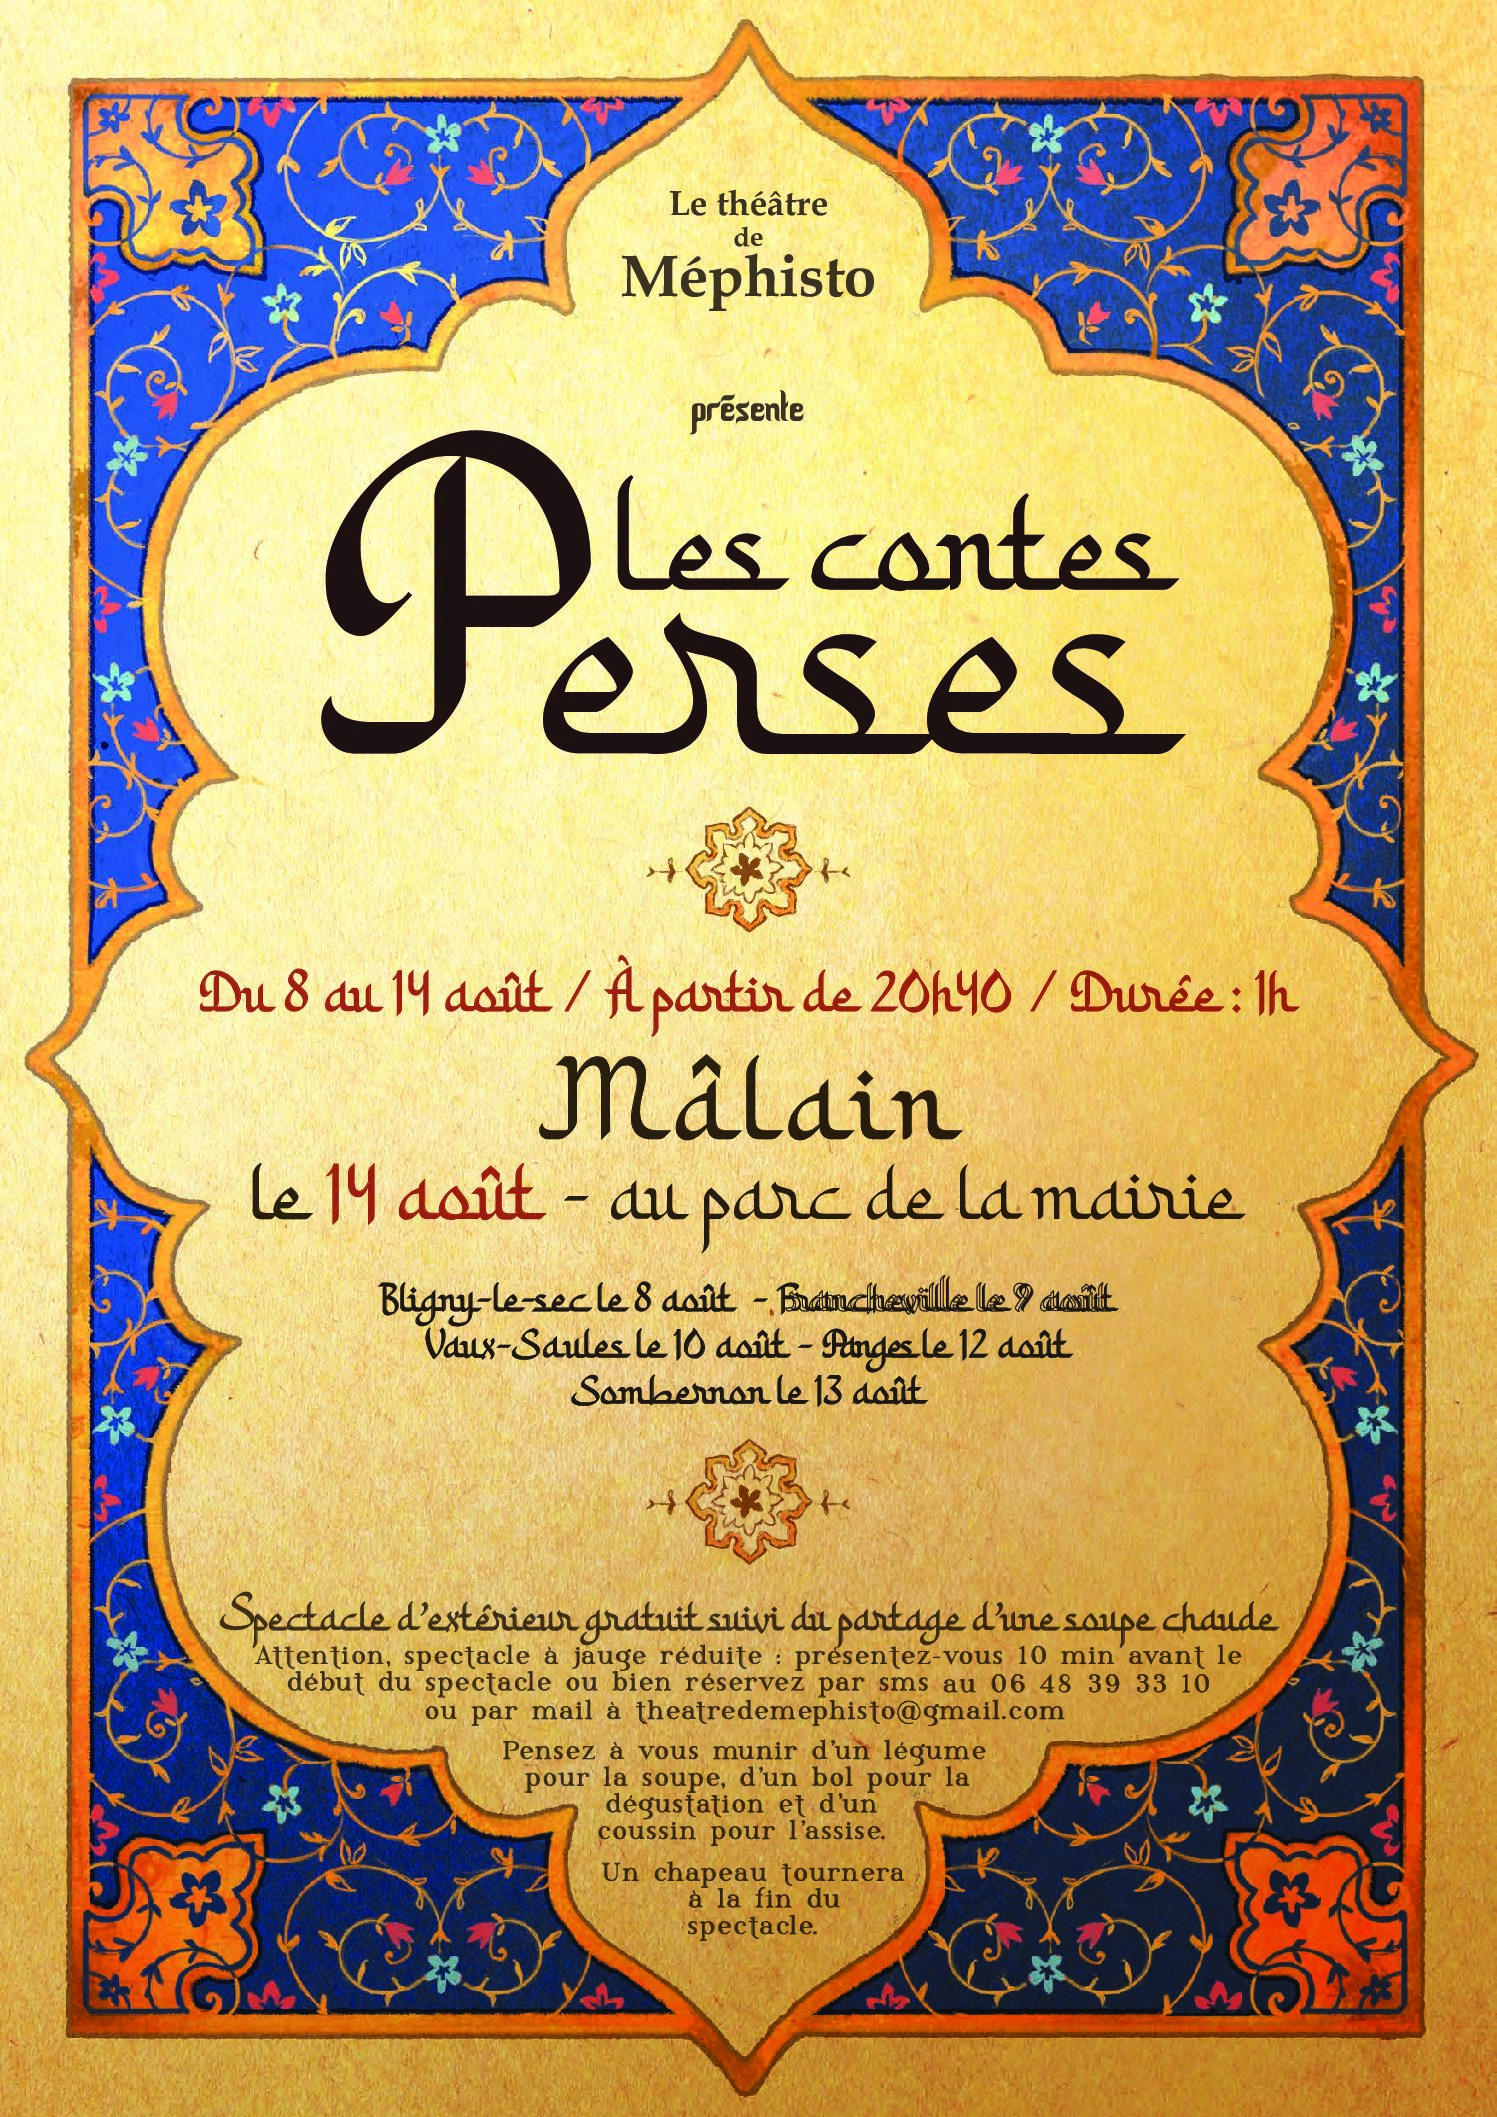 Le théâtre
de
Méphisto
présente
les contes
Perses
Du 8 au 14 août / À partir de 20h40 / Durée : 1h
Mâlain
le 14 août - au parc de la mairie
Bligny-le-sec le 8 août - Francheville le 9 août
Vaux-Saules le 10 août - Panges le 12 août
Sombernon le 13 août
Spectacle d'extérieur gratuit suivi du partage d'une soupe chaude
Attention, spectacle à jauge réduite : présentez-vous 10 min avant le
début du spectacle ou bien réservez par sms au 06 48 39 33 10
ou par mail à theatredemephisto@gmail.com
Pensez à vous munir d'un légume
pour la soupe, d'un bol pour la
dégustation et d'un
coussin pour l'assise.
Un chapeau tournera
à la fin du
spectacle.